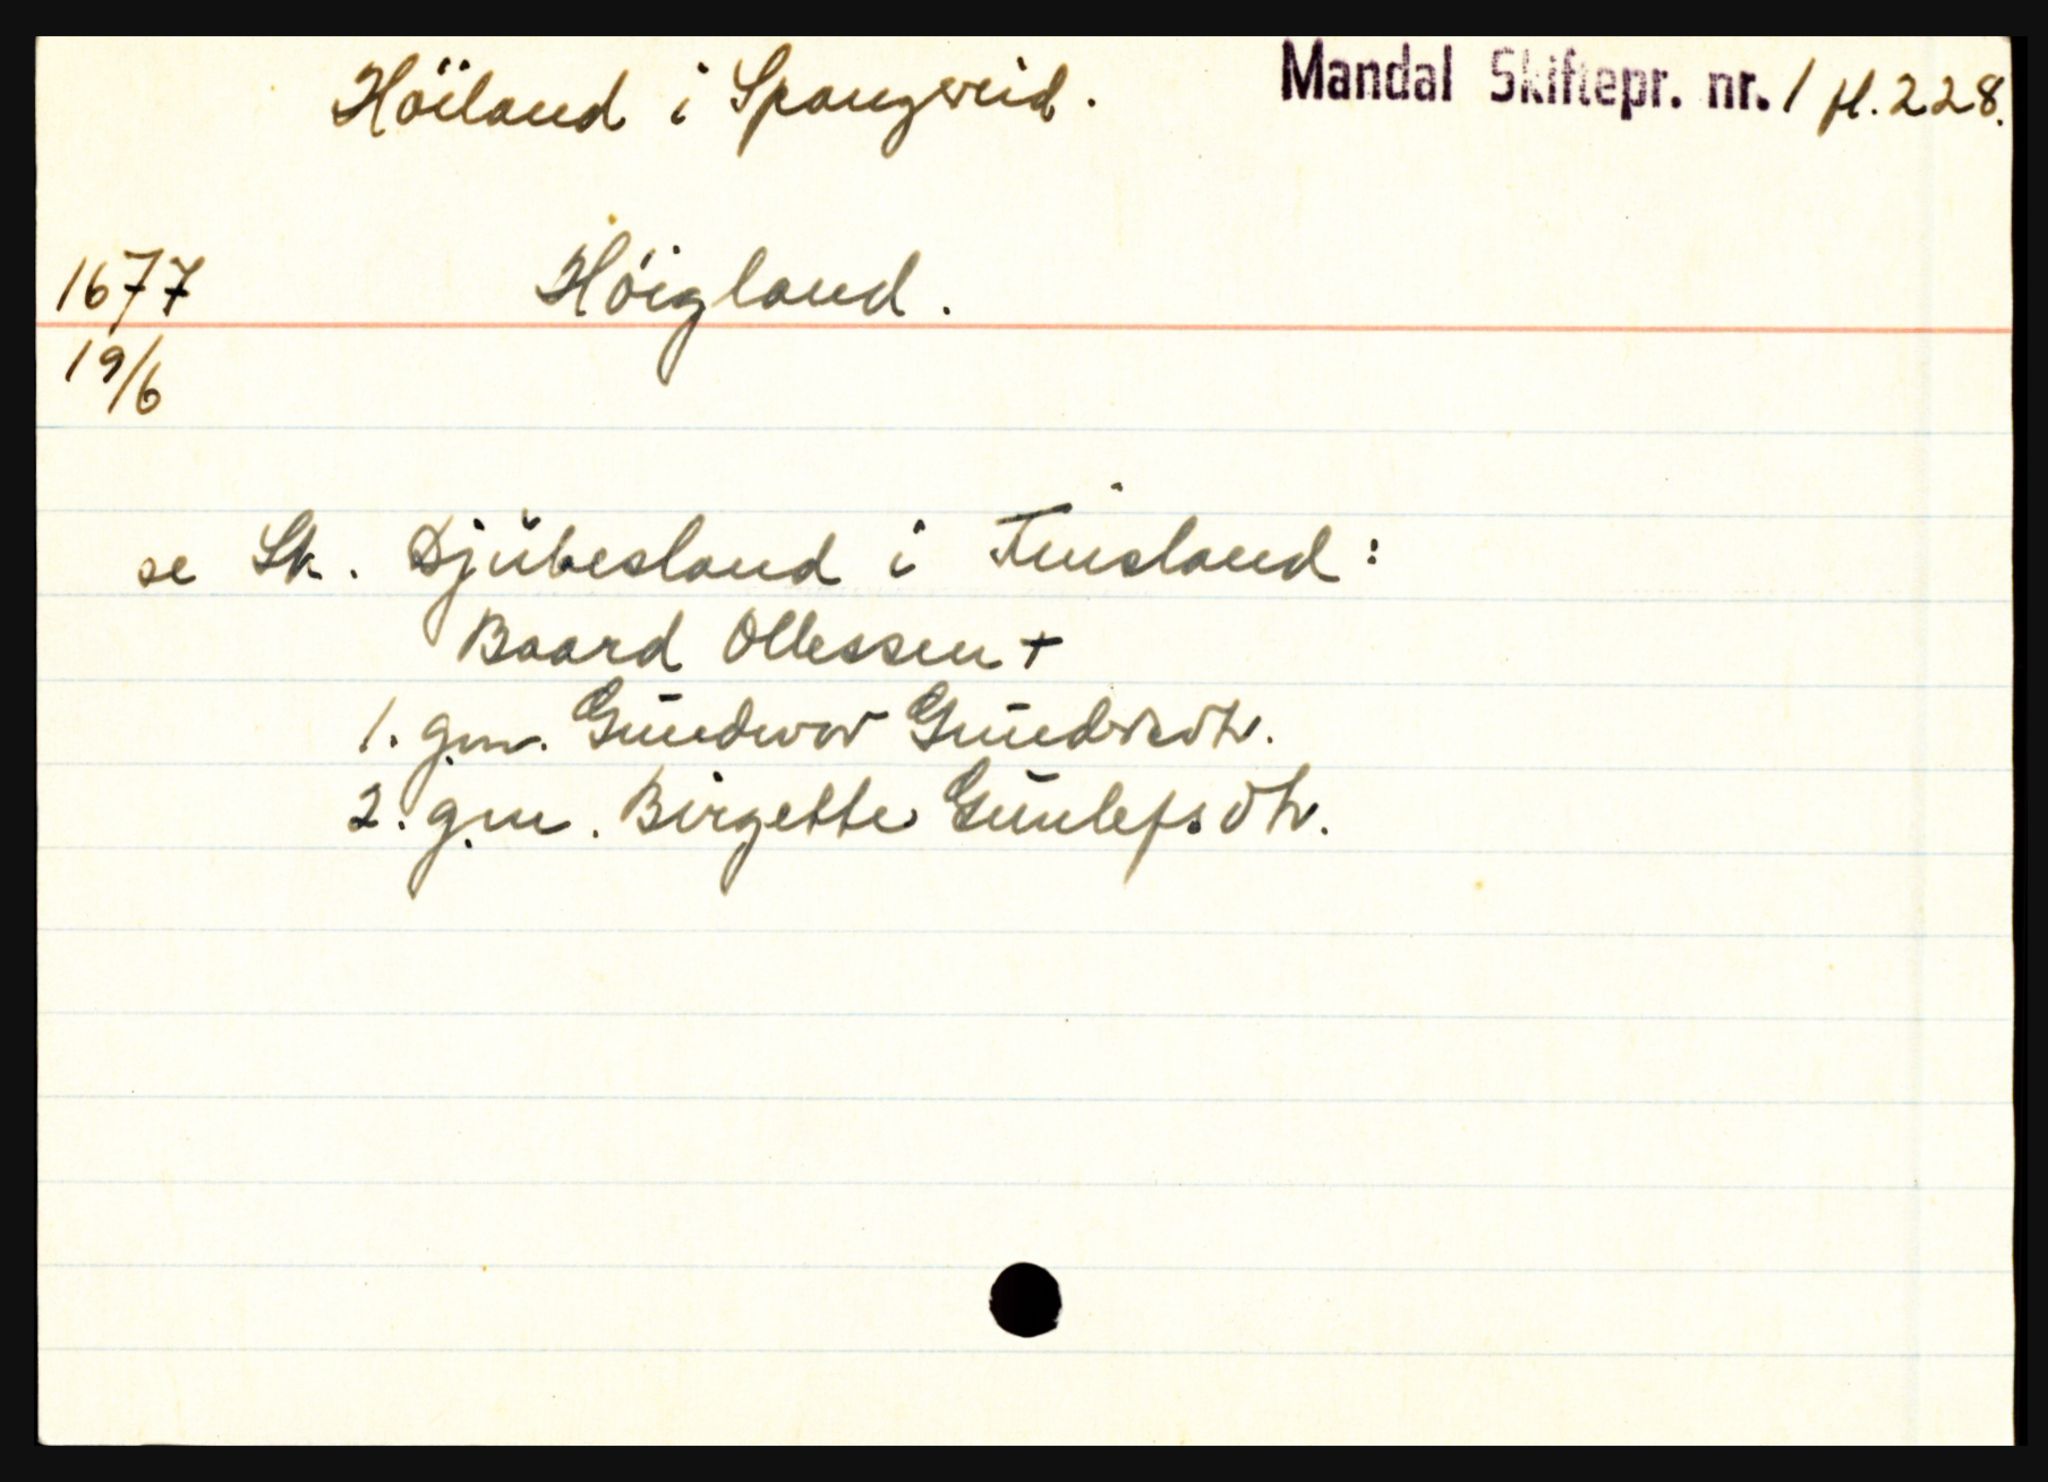 Höiland i Spangereid. Mandal Skiftepr. nr. 1 fl. 228.
1677 Höigland.
19/6
se Sk. Djubesland i Finsland:
Baard Ollessen +
1. gm. Gundvor
2. gm. Birgette Gunlefsdtr.